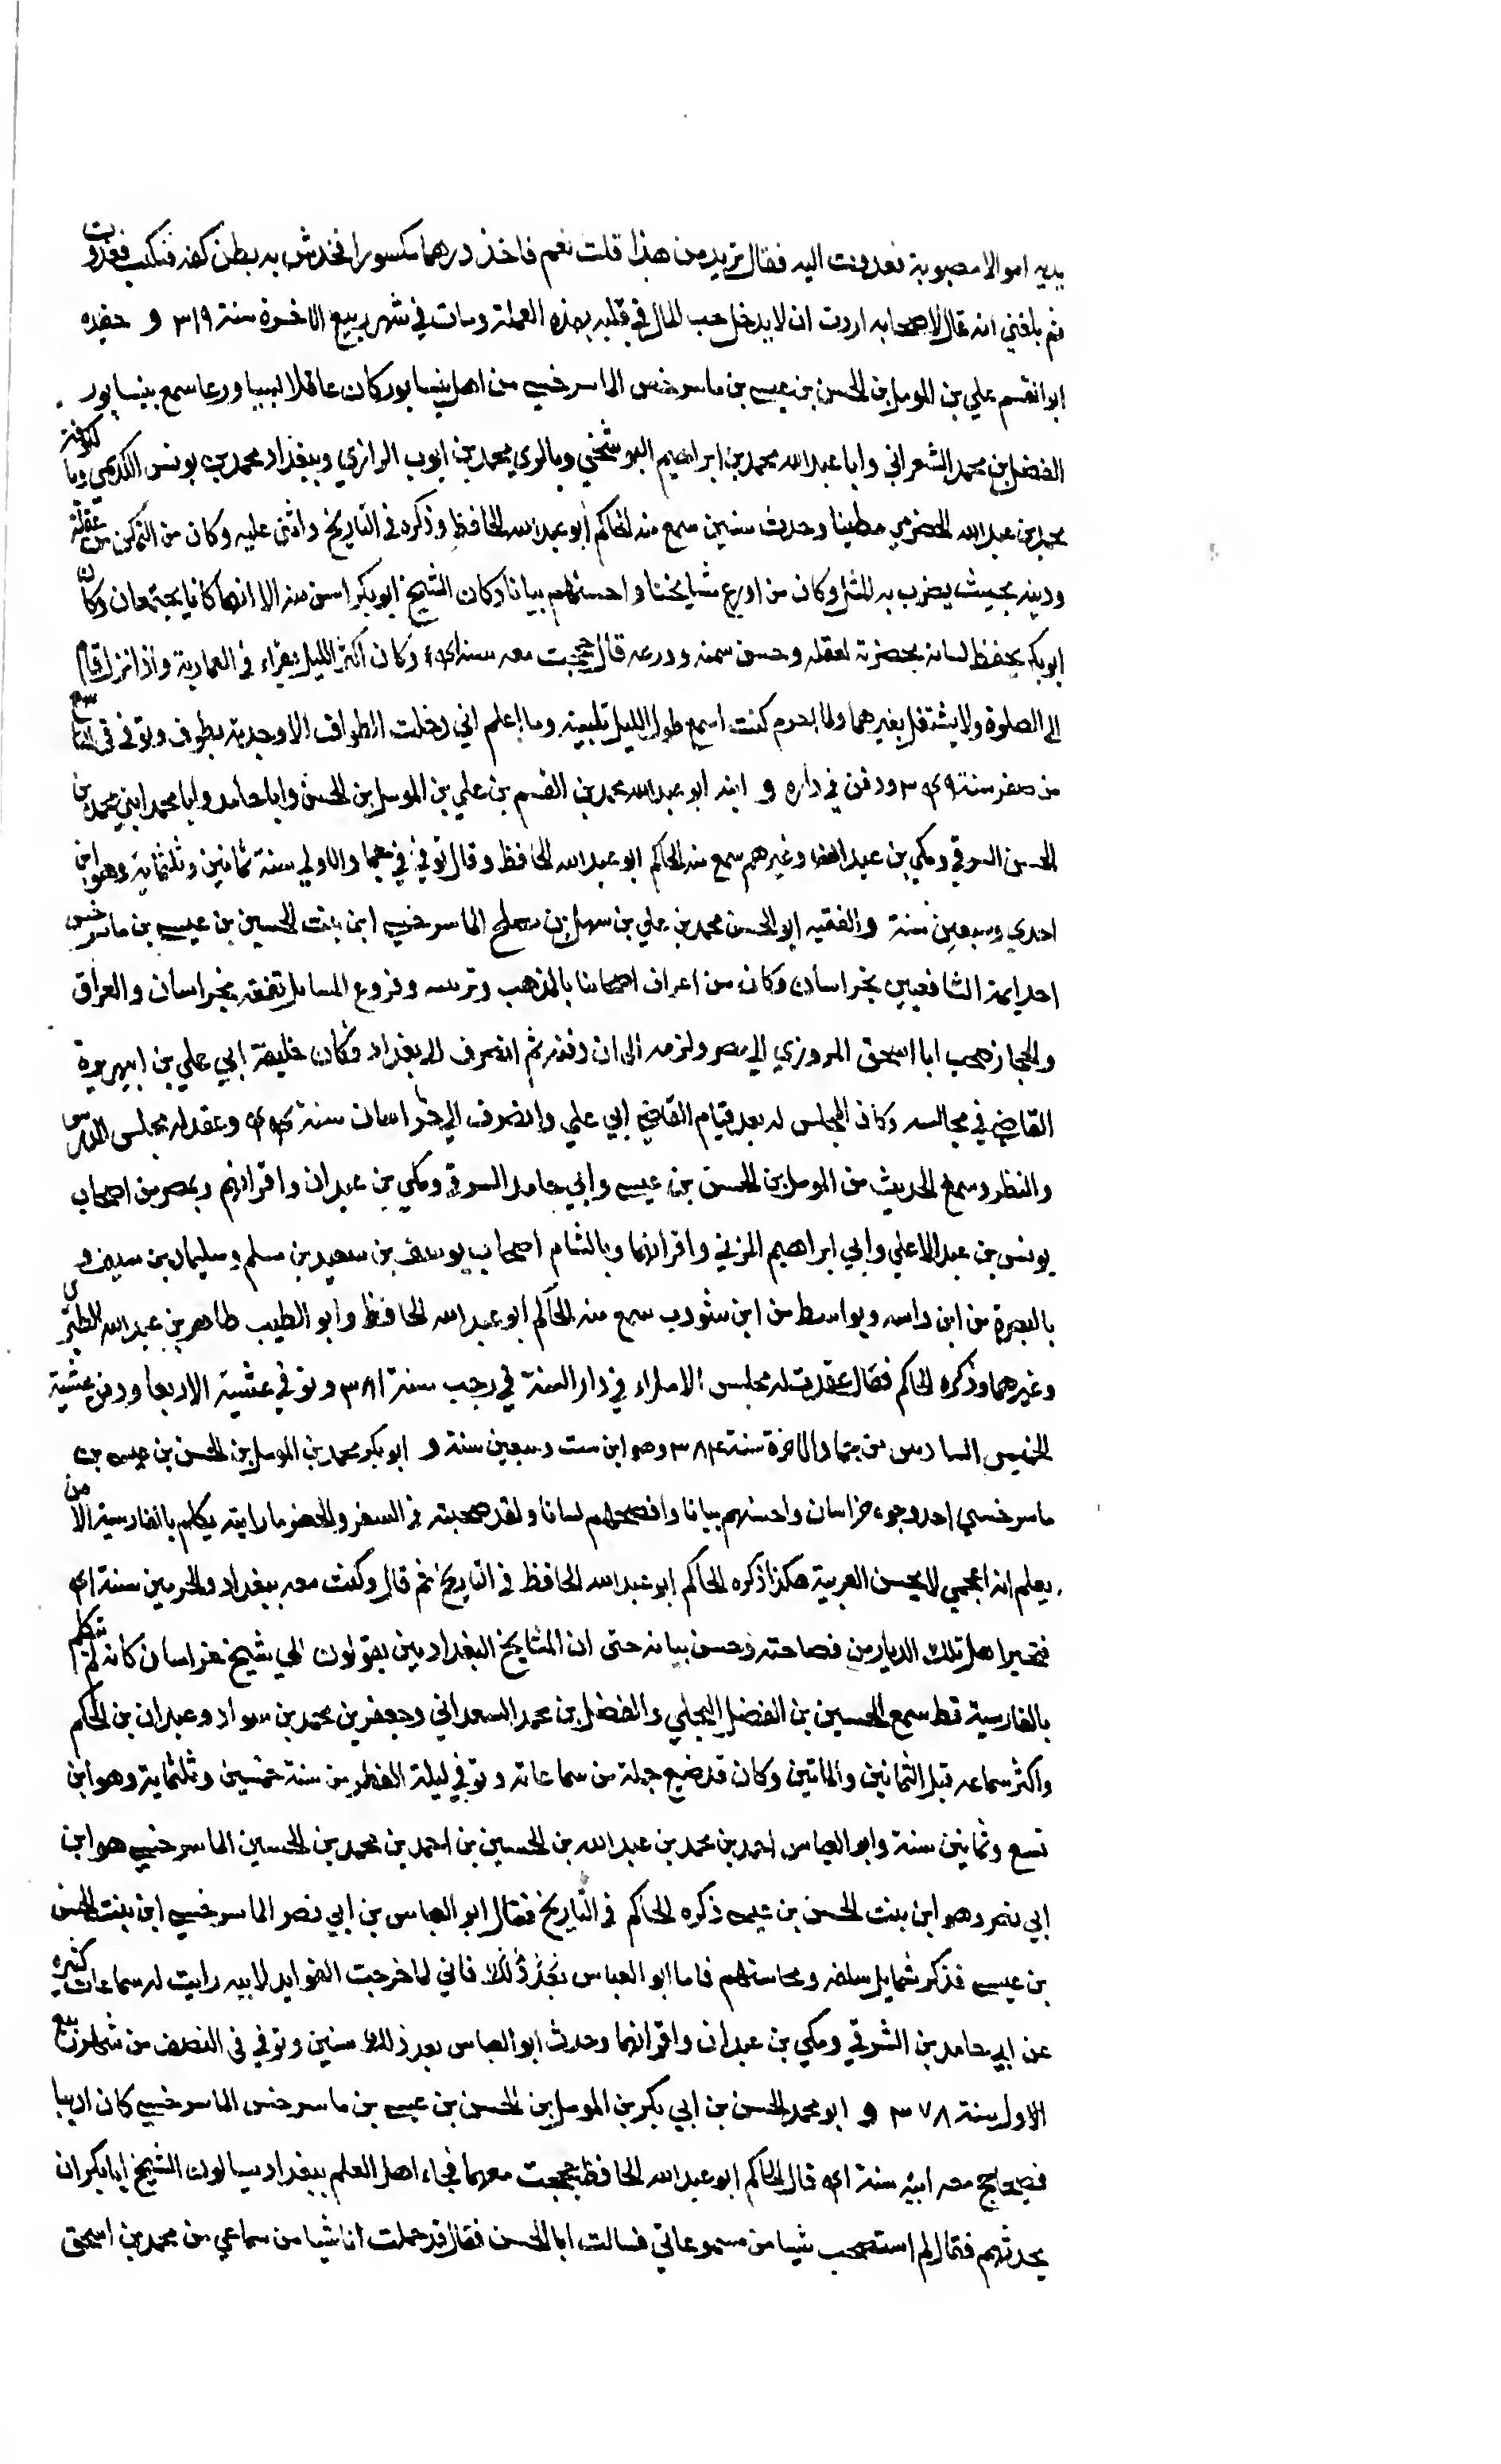 يديه اموالا مصبوبة فعدونت اليه فقال تريد من هذا قلت نعم فاخذ درهما مكسورا فخدش به بطن كفه فنكب فعدوت
ثم بلغني انه قال لاصحابه اردت ان لا يدخل حب المال في قلبه بهذه العملة ومات في شهر ربيع الاخرة سنة ٣١٩ و حفيده
ابو القسم علي بن المومل بن الحسن بن عيسى بن ماسرخس الماسرخسي من اهل نيسابور كان عاقلا لبيبا ورعا سمع بنيسابور
الفضل بن محمد الشعراني وابا عبد الله محمد بن ابراهيم البوشنجي وبالري محمد بن ايوب الرازي وببغداد محمد بن يونس الكديمي وبالكوفة
محمد بن عبد الله الحضرمي مطينا وحدث سنين سمع منه الحاكم ابو عبد الله الحافظ وذكره في التاريخ واثنى عليه وكان من التمكن من عقله
ودينه بحيث يضرب به المثل وكان من اورع مشايخنا واحسنهم بيانا وكان الشيخ ابو بكر اسن منه الا انهما كانا يجتمعان وكان
ابو بكر يحفظ لسانه بحضرته لعقله وحسن سمته وورعه قال حججت معه سنة وكان اكثر الليل يقراء في العمارية واذا نزل قام
الى الصلوة ولا يشتغل بغيرهما ولما يحرم كنت اسمع طول الليل تلبيته وما اعلم اني دخلت الطواف الا وجدته يطوف وتوفي في التاسع
من صفر سنة ودفن في داره و ابنه ابو عبد الله محمد بن القسم بن علي بن المومل بن الحسن وابا حامد وابا محمد ابني محمد بن
الحسن السرقي ومكي بن عبدان وغيرهم سمع منه الحاكم ابو عبد الله الحافظ وقال توفي في جمادالاولي سنة ثمانين وثلثماية وهو ابن
احدي وسبعين سنة والفقيه ابو الحسن محمد بن علي بن سهل بن مصلح الماسرخسي ابن بنت الحسين بن عيسى بن ماسرخس
احد ايمة الشافعيين بخراسان وكان من اعراف اصحابنا بالمذهب وترتيبه وفروع المسايل تفقه بخراسان والعراق
والحجاز صحب ابا اسحق المروزي الي مصر ولزمه الى ان دفنه ثم انصرف الى بغداد فكان خليفة ابي علي بن ابي هريرة
القاضي في مجالسه وكان المجلس له بعد قيام القاضي ابي علي وانصرف الي خراسان سنة وعقد له مجلس الدرس
والنظر وسمع الحديث من المومل بن الحسن بن عيسى وابي حامد السرقي ومكي بن عبدان واقرانهم وبمصر من اصحاب
يونس بن عبد الاعلي وابي ابراهيم المزني واقرانهما وبالشام اصحاب يوسف بن سعيد بن مسلم وسليمان بن سيف و
بالبصرة من ابن داسه وبواسط من ابن شوذب سمع منه الحاكم ابو عبد الله الحافظ وابو الطيب طاهر بن عبد الله الطبري
وغيرهما وذكره الحاكم فقال عقدت له مجلس الاملاء في دار السنة في رجب سنة ٣٨١ وتوفي عشية الاربعا ودفن عشية
الخميس السادس من جمادالاخرة سنة ٣٨٤ وهو ابن ست وسبعين سنة و ابو بكر محمد بن المومل بن الحسن بن عيسى بن
ماسرخسي احد وجوه خراسان واحسنهم بيانا وافصحهم لسانا ولقد صحبته في السفر والحضر ما رايته يكلم بالفارسية الا من
يعلم انه اعجمي لا يحسن العربية هكذا ذكره الحاكم ابو عبد الله الحافظ في التاريخ ثم قال وكنت معه ببغداد والحرمين سنة
فتحير اهل تلك الديار من فصاحته وحسن بيانه حتى ان المشايخ البغداديين يقولون لحي شيخ خراسان كانه لم يتكلم
بالفارسية قط سمع الحسين بن الفضل البجلي والفضل بن محمد السعداني وجعفر بن محمد بن سواد وعبدان بن الحكم
واكثر سماعه قبل الثمانين والماتين وكان قد ضيع جملة من سماعاته وتوفي ليلة الفطر من سنة خمسين وثلثماية وهو ابن
تسع وثمانين سنة وابو العباس احمد بن محمد بن عبد الله بن الحسين بن احمد بن محمد بن الحسين الماسرخسي هو ابن
ابي نصر وهو ابن بنت الحسن بن عيسى ذكره الحاكم في التاريخ فقال ابو العباس بن ابي نصر الماسرخسي ابن بنت الحسن
بن عيسى فذكر شمايل سلفه ومحاسنهم فاما ابو العباس بعد ذلك فاني لما خرجت الفوايد لابيه رايت له سماعات كثيره
عن ابي حامد بن الشرقي ومكي بن عبدان واقرانهما وحدث ابو العباس بعد ذلك سنين وتوفي في النصف من شهر ربيع
الاول سنة ٣٧٨ و ابو محمد الحسن بن ابي بكر بن المومل بن الحسن بن عيسى بن ماسرخس الماسرخسي كان اديبا
فصيحا حج معه ابيه سنة قال الحاكم ابو عبد الله الحافظ حججت معهما فجاء اهل العلم ببغداد يسالون الشيخ ابا بكر ان
يحدثهم فقال لم استصحب شيا من مسموعاتي فسالت ابا الحسن فقال قد حملت انا شيا من سماعي من محمد بن اسحق